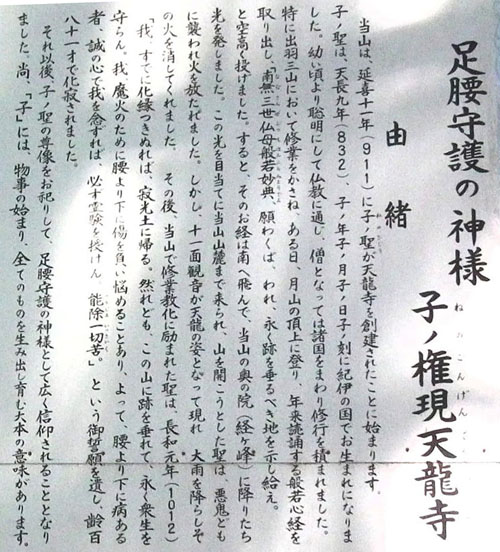 足腰守護の神様
子ノ権現天龍寺
ねのごんげん
由緒
当山は、延喜十一年(911)に子ノ聖が天龍寺を創建されたことに始まります。
子ノ聖は、天長九年(832)、子ノ年子ノ月子ノ日子ノ刻に紀伊の国でお生まれになりま
した。幼い頃より聡明にして仏教に通し、僧となっては諸国をまわり修行を積まれました。
特に出羽三山において修業をかさね、ある日、月山の頂上に登り、年来読誦する般若心経を
取り出し、南無三世仏母般若妙典、願わくば、われ、永く跡を垂るべき地を示し給え。
と空高く投げました。すると、そのお経は南へ飛んで、当山の奥の院(経ヶ峰)に降りたち
光を発しました。この光を目当てに当山山麓まで来られ、山を開こうとした聖は、悪鬼ども
に襲われ火を放たれました。しかし、十一面観音が天龍の姿となって現れ 大雨を降らしそ
の火を消してくれました。 その後、当山で修業教化に励まれた聖は、長和元年(1012)
「我、すでに化縁つきぬれば、寂光土に帰る。然れども、この山に跡を垂れて、永く衆生を
守らん。我、魔火のために腰より下に傷を負い悩めることあり、よって、腰より下に病ある
者、誠の心で我を念ずれば、必ず霊験を授けん。能除一切苦。」という御誓願を遺し、齢百
八十一才で化寂されました。
それ以後、子ノ聖の尊像をお祀りして、足腰守護の神様として広く信仰されることとなり
ました。尚、「子」には、物事の始まり、全てのものを生み出し育む大本の意味があります。